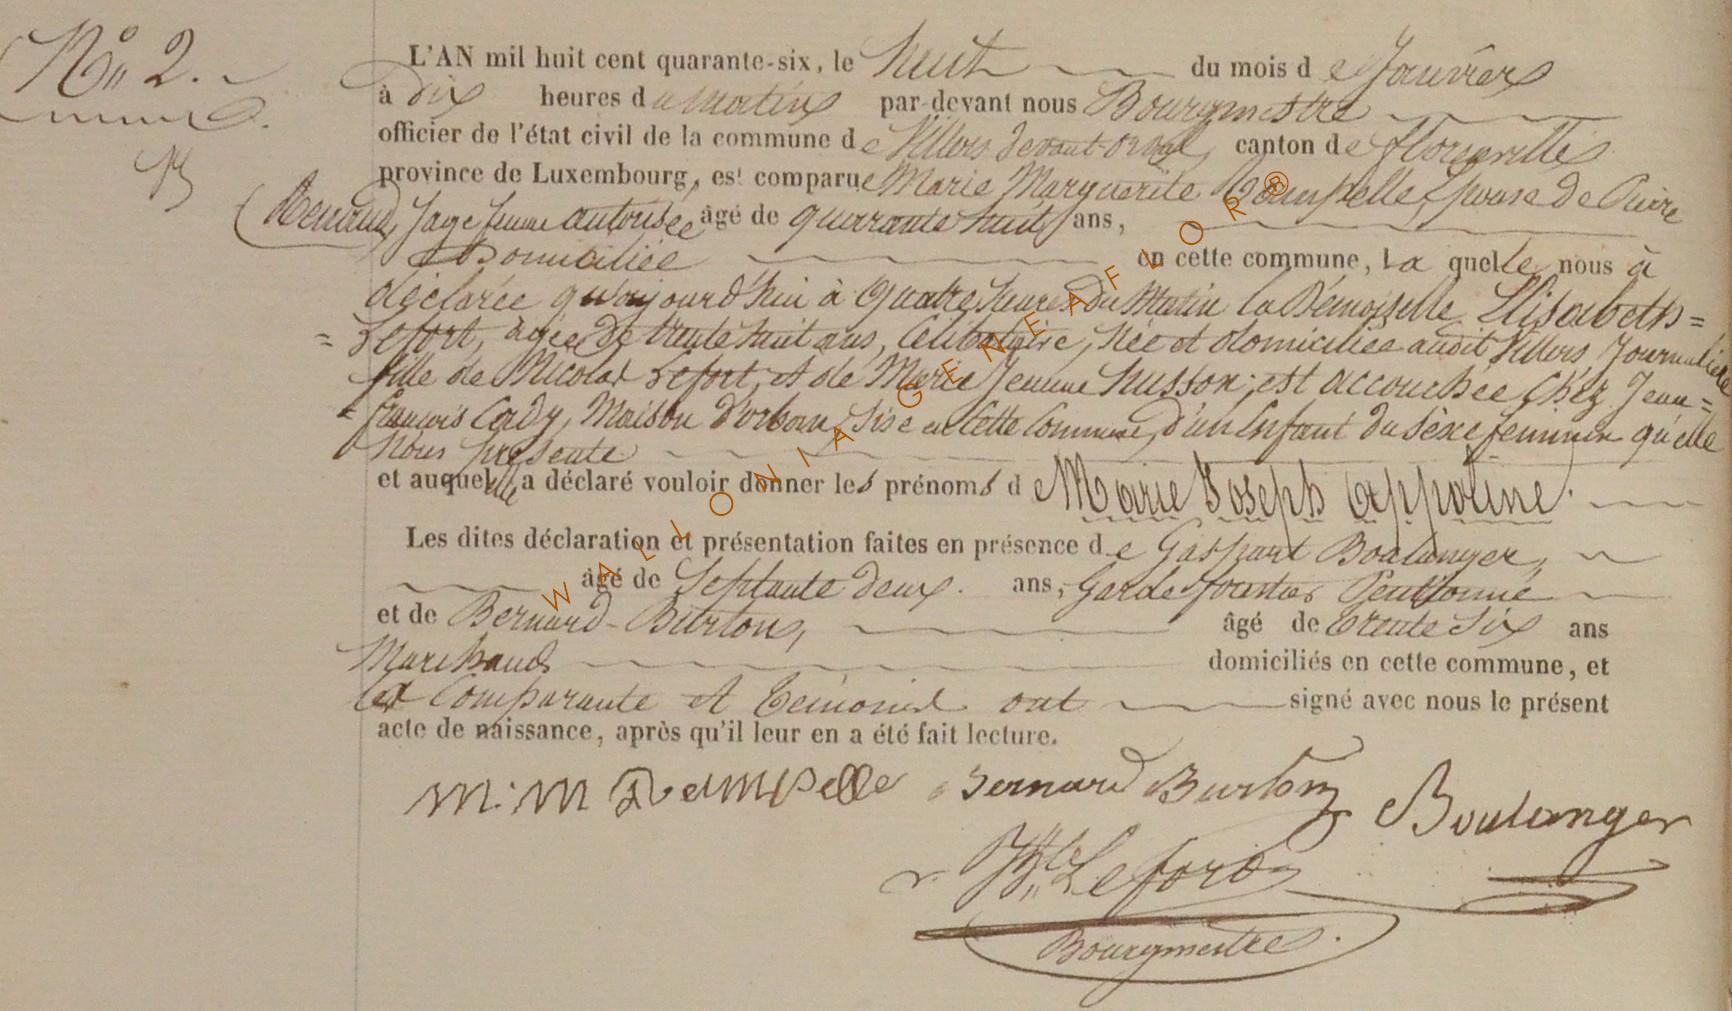 N° 2.
L'AN mil huit cent quarante-six, le huit du mois de Janvier
à dix heures du matin par-devant nous Bourgmestre
officier de l'état civil de la commune de Villers devant-orval, canton de florenville
province de Luxembourg, est comparue Marie Marguerite Dempelle, Epouse de Pierre
Renaud, sage femme autorisée âgé de quarrante huit ans,
Domiciliée en cette commune, la quelle nous a
déclarée qu'aujourd'hui à Quatre heures du Matin la Demoiselle Elisabeth =
= Lefort, agée de trente huit ans, Célibataire, Née et domiciliée audit Villers, Journalière
fille de Nicolas Lefort, et de Marie Jeanne Husson, est accouchée Chez Jean =
= françois Cady, Maison d'orban, Sise en Cette Commune, d'un Enfant du sèxe feminin qu'elle
Nous présente
et auquelle a déclaré vouloir donner les prénoms de Marie Joseph Appoline.
Les dites déclaration et présentation faites en présence de Gaspart Boulanger,
âgé de Septante deux. ans, Garde forestier Pentionné
et de Bernard-Burton, âgé de trente Six ans
Marchand domiciliés en cette commune, et
Comparante et temoins ont signé avec nous le présent
acte de naissance, après qu'il leur en a été fait lecture.
M: M Dempelle Bernard Burton Boulanger
Lefort
Bourgmestre.
WALLONIA GENEAFLOR®